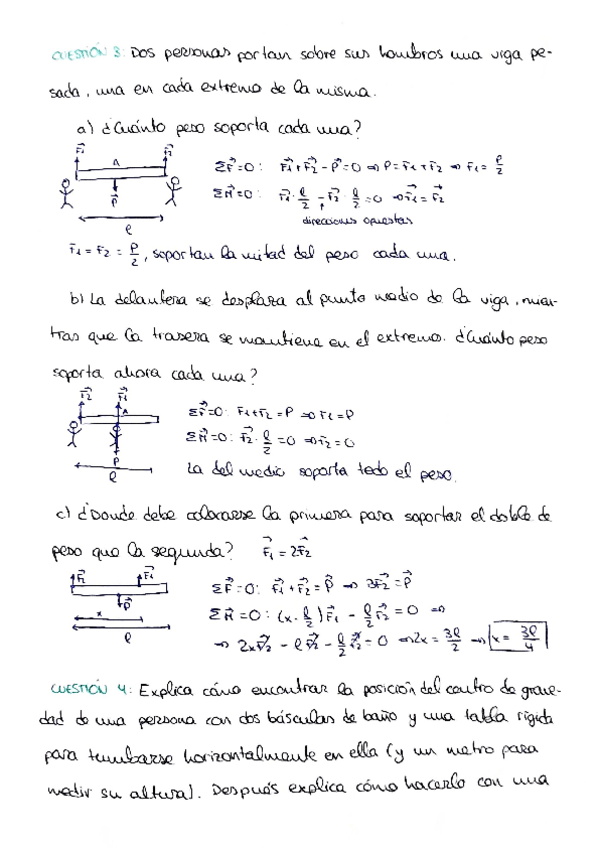 CUESTIÓN 3: Dos personas portan sobre sus hombros una viga pe-
sada, una en cada extremo de la misma.
a) ¿Cuánto peso soporta cada una?
F1 A F2
P
l
ΣF=0: F1+F2-P=0 ⇒ P=F1+F2 ⇒ F1= P/2
ΣM=0: F1· l/2 - F2· l/2 =0 ⇒ F1=F2
direcciones opuestas
F1=F2= P/2, soportan la mitad del peso cada una.
b) La delantera se desplaza al punto medio de la viga, mien-
tras que la trasera se mantiene en el extremo. ¿Cuánto peso
soporta ahora cada una?
F2 F1
A
P
l
ΣF=0: F1+F2=P ⇒ F1=P
ΣM=0: F2· l/2 =0 ⇒ F2=0
La del medio soporta todo el peso.
c) ¿Donde debe colocarse la primera para soportar el doble de
peso que la segunda? F1=2F2
F2 F1
P
x
l
ΣF=0: F1+F2=P ⇒ 3F2=P
ΣM=0: (x- l/2)F1 - l/2 F2=0 ⇒
⇒ 2xF2 - lF2 - l/2 F2=0 ⇒ 2x= 3l/2 ⇒ x= 3l/4
CUESTIÓN 4: Explica cómo encontrar la posición del centro de grave-
dad de una persona con dos básculas de baño y una tabla rígida
para tumbarse horizontalmente en ella (y un metro para
medir su altura). Después explica cómo hacerlo con una